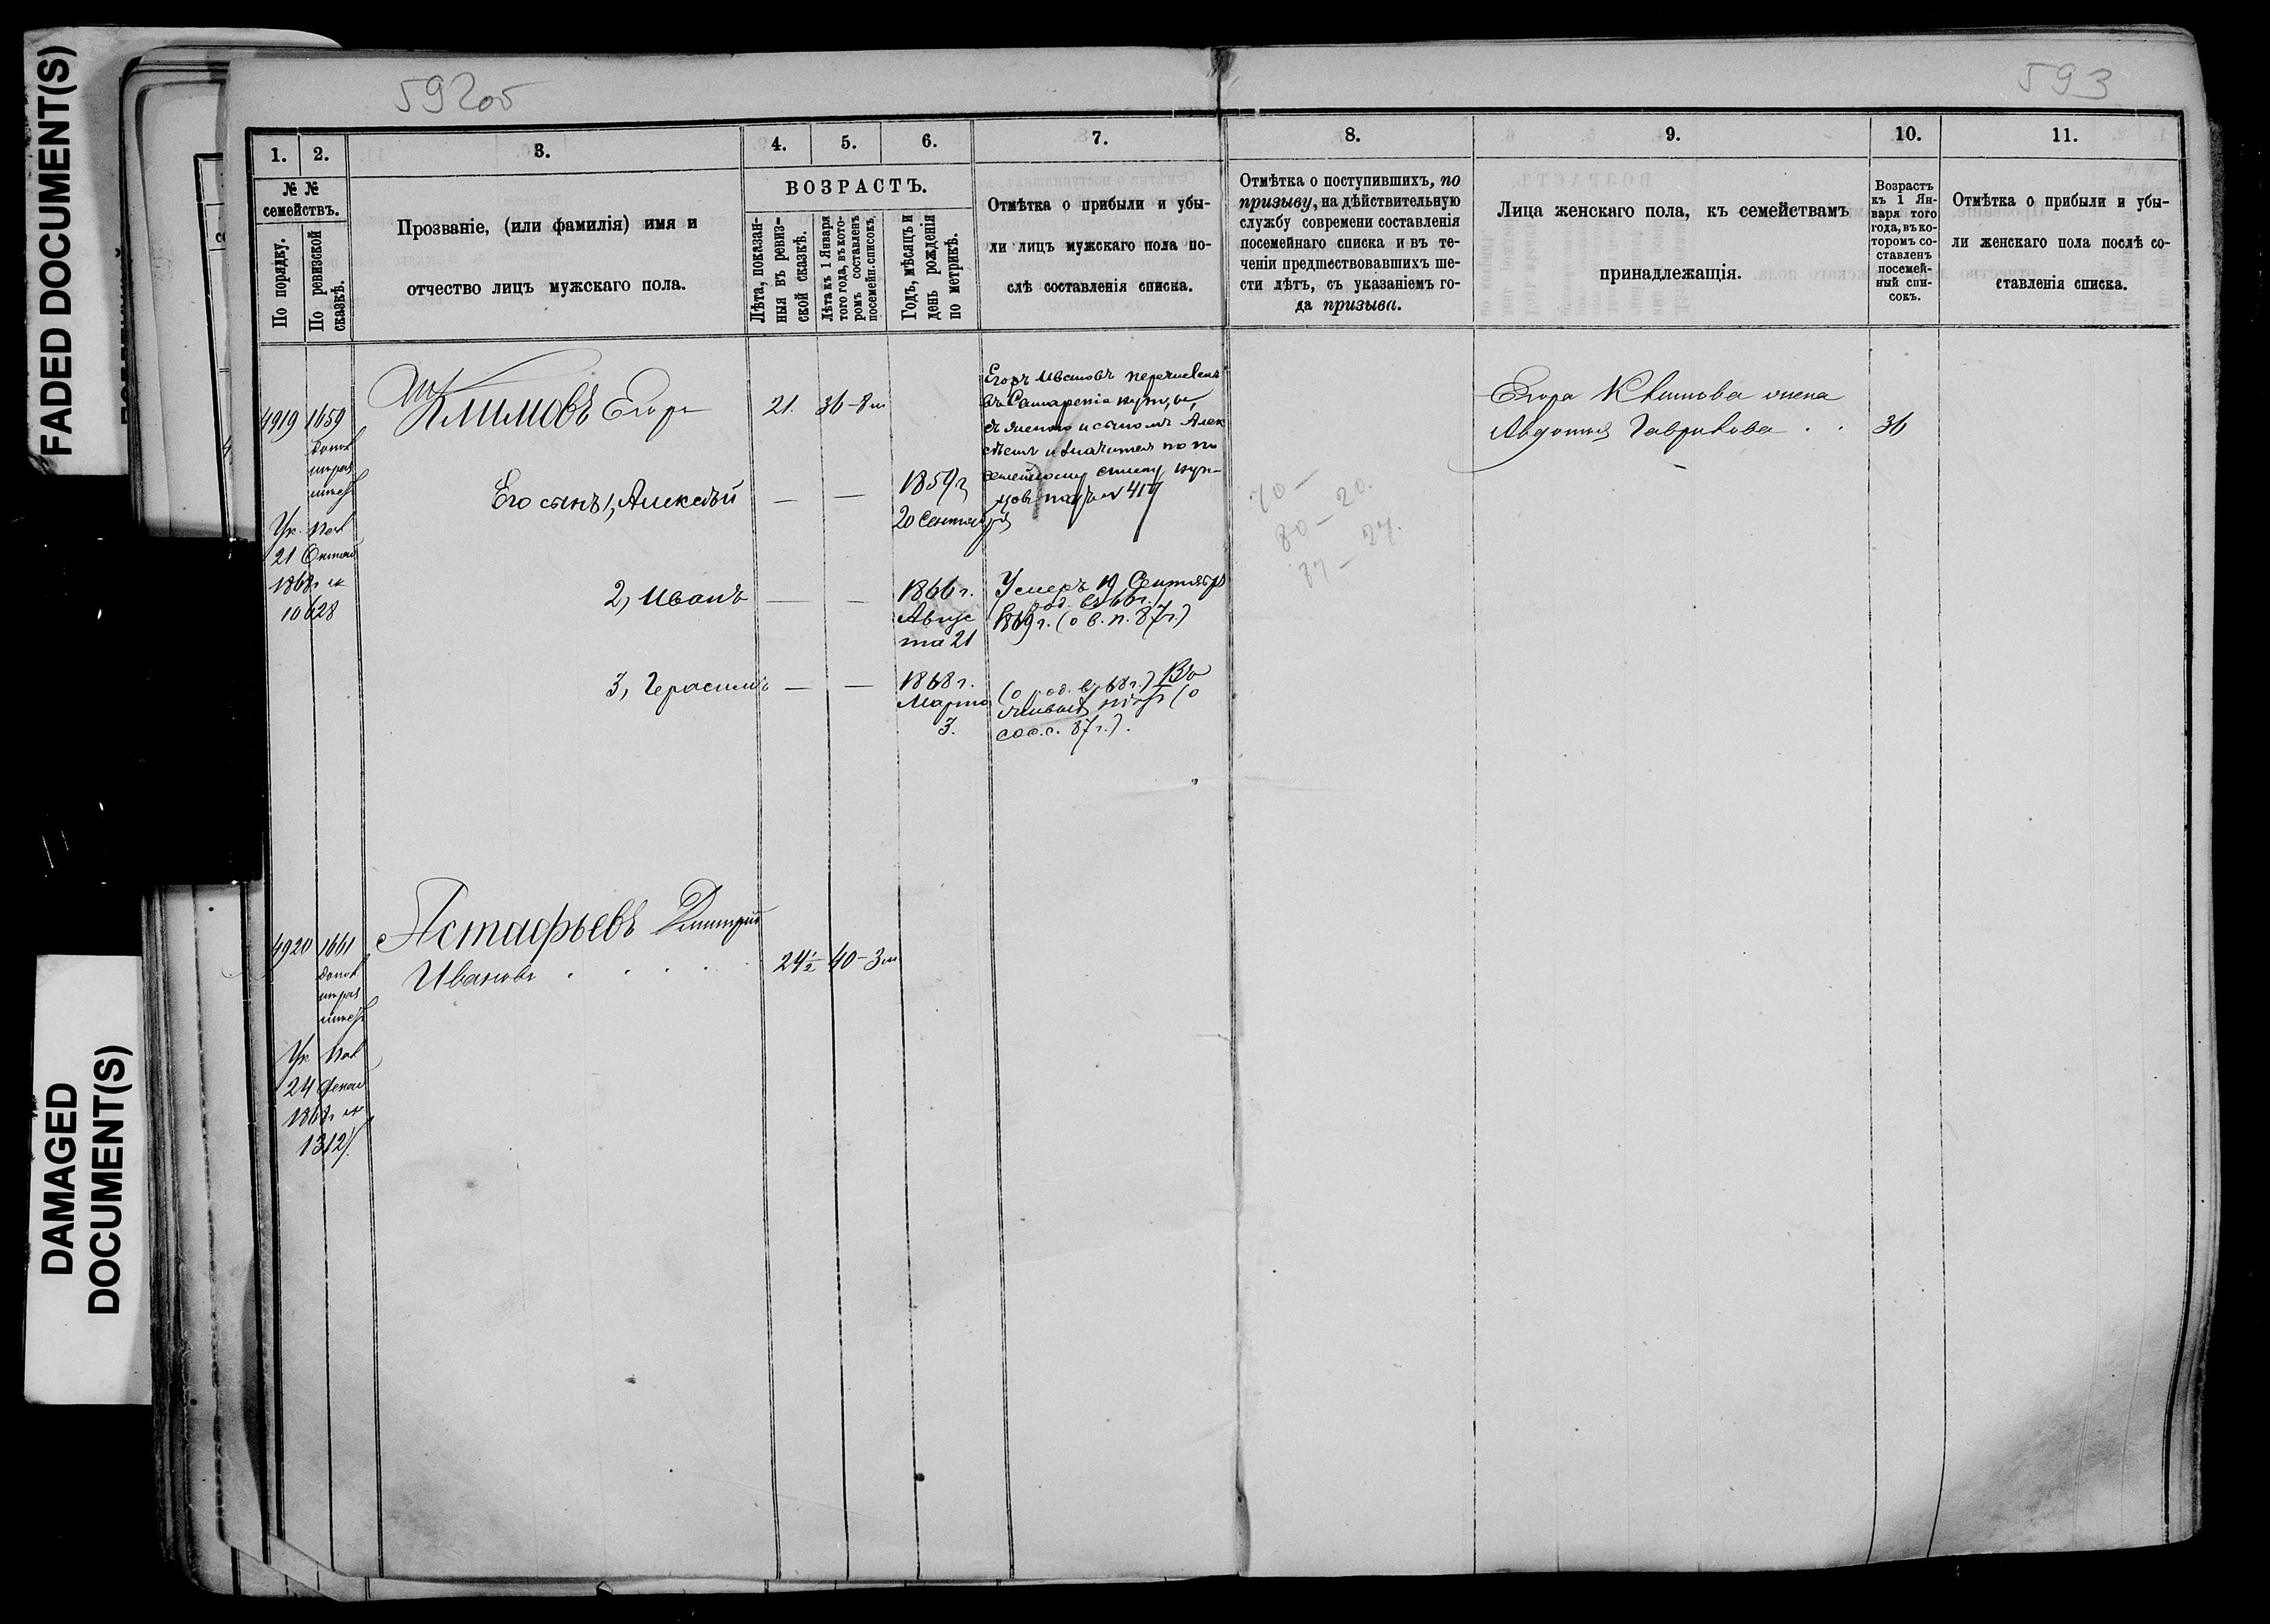 FADED DOCUMENT(S)
DAMAGED
DOCUMENT(S)
592об
593
1.
2.
3.
4.
5.
6.
7.
8.
9.
10.
11.
№ №
семействъ.
По порядку.
По ревизской
сказкѣ.
Прозваніе, (или фамилія) имя и
отчество лицъ мужскаго пола.
ВОЗРАСТЪ.
Лѣта, показан-
ныя въ ревиз-
ской сказкѣ.
Лѣта къ 1 Января
того года, въ кото-
ромъ составленъ
посемейн. списокъ.
Годъ, мѣсяцъ и
день рожденія
по метрикѣ.
Отмѣтка о прибыли и убы-
ли лицъ мужскаго пола по-
слѣ составленія списка.
Отмѣтка о поступившихъ, по
призыву, на дѣйствительную
службу современи составленія
посемейнаго списка и въ те-
ченіи предшествовавшихъ ше-
сти лѣтъ, съ указаніемъ го-
да призыва.
Лица женскаго пола, къ семействамъ
принадлежащія.
Возрастъ
къ 1 Ян-
варя того
года, въ ко-
торомъ со-
ставленъ
посемей-
ный спи-
сокъ.
Отмѣтка о прибыли и убы-
ли женскаго пола послѣ со-
ставленія списка.
4919 1659
Климовъ Егоръ
21. 36-8м
Егоръ Ивановъ перечисленъ
въ купцы,
съ женою и сыномъ Алек
сѣемъ и значится по по
семейному списку куп-
цовъ подъ № 417
Егора Климова жена
Авдотья Гаврилова . . 36
Его сынъ 1, Алексѣй — —
1859г
20 Сентября
70 —
80 — 20.
87 — 27.
21
1868г №
10628
2, Иванъ — —
1866 г.
Авгус
та 21
Умеръ 19 Сентября
(род. въ 66г.
1869 г. (о в. п. 87г.)
3, Герасимъ — —
1868 г.
Марта
3.
(о род. въ 68г.)
(о
сос. с. 87г.).
4920 1661
Астафьевъ Дмитрій
Ивановъ . . . .
24½ 40-3м
24
1868г №
13127.